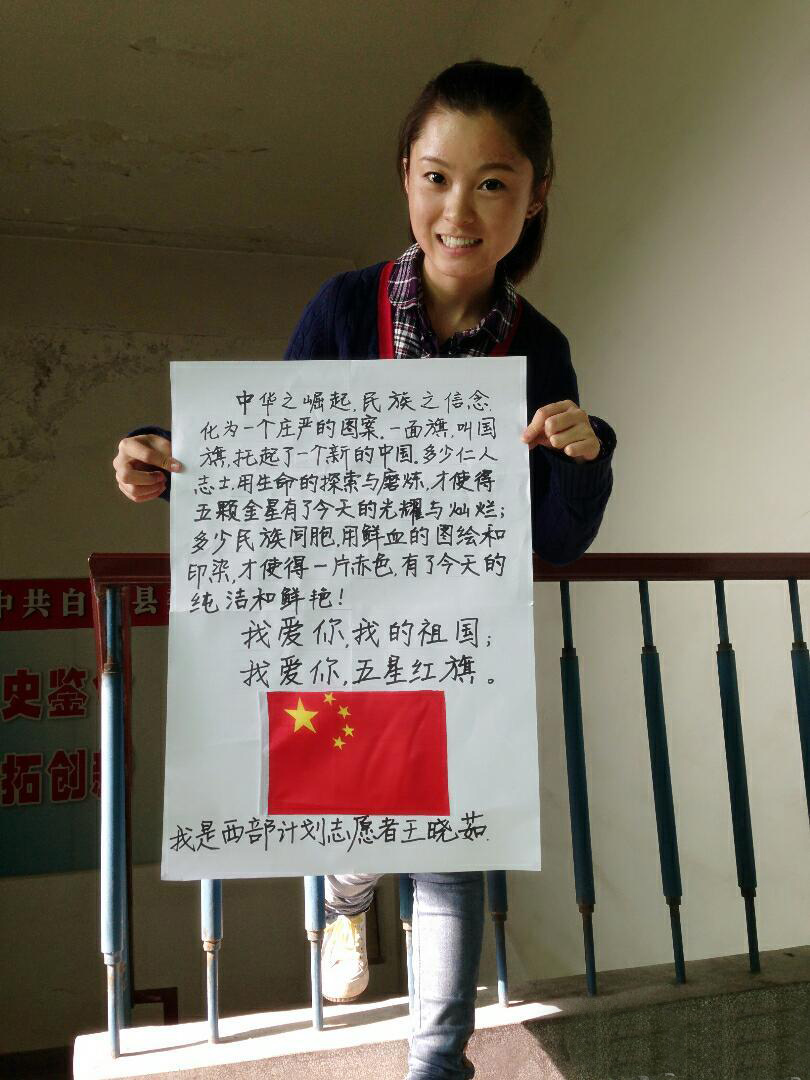 中华之崛起,民族之信念,
化为一个庄严的图案。一面旗,叫国
旗,托起了一个新的中国。多少仁人
志士,用生命的探索与磨炼,才使得
五颗金星有了今天的光耀与灿烂;
多少民族同胞,用鲜血的图绘和
印染,才使得一片赤色,有了今天的
纯洁和鲜艳!
我爱你,我的祖国;
我爱你,五星红旗。
我是西部计划志愿者王晓茹.
中共白 县
史鉴
拓创新